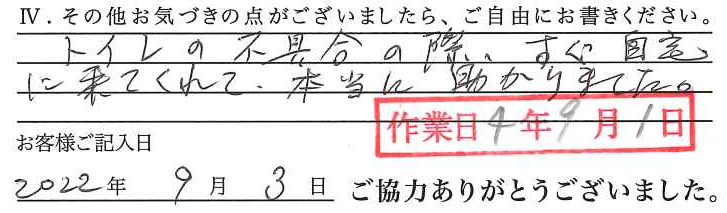 Ⅳ．その他お気づきの点がございましたら、ご自由にお書きください。
トイレの不具合の際、すぐ自宅
に来てくれて、本当に助かりました。
作業日4年9月1日
お客様ご記入日
2022年 9月 3日 ご協力ありがとうございました。